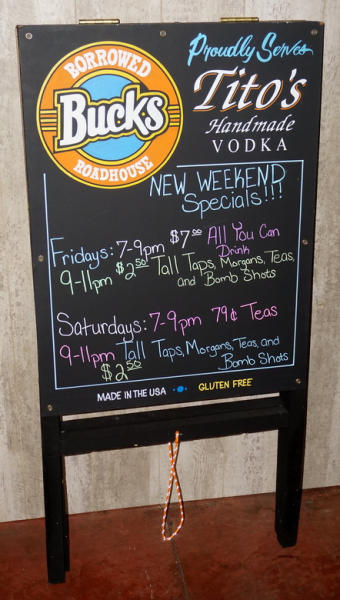 BORROWED
Bucks
ROADHOUSE
Proudly Serves
Tito's
Handmade
VODKA
NEW WEEKEND
Specials!!!
Fridays: 7-9pm $7.00 All You Can
Drink
9-11pm $2.50 Tall Taps, Morgans, Teas,
and Bomb Shots
Saturdays: 7-9pm 79¢ Teas
9-11pm Tall Taps, Morgans, Teas, and
$2.50 Bomb Shots
MADE IN THE USA GLUTEN FREE